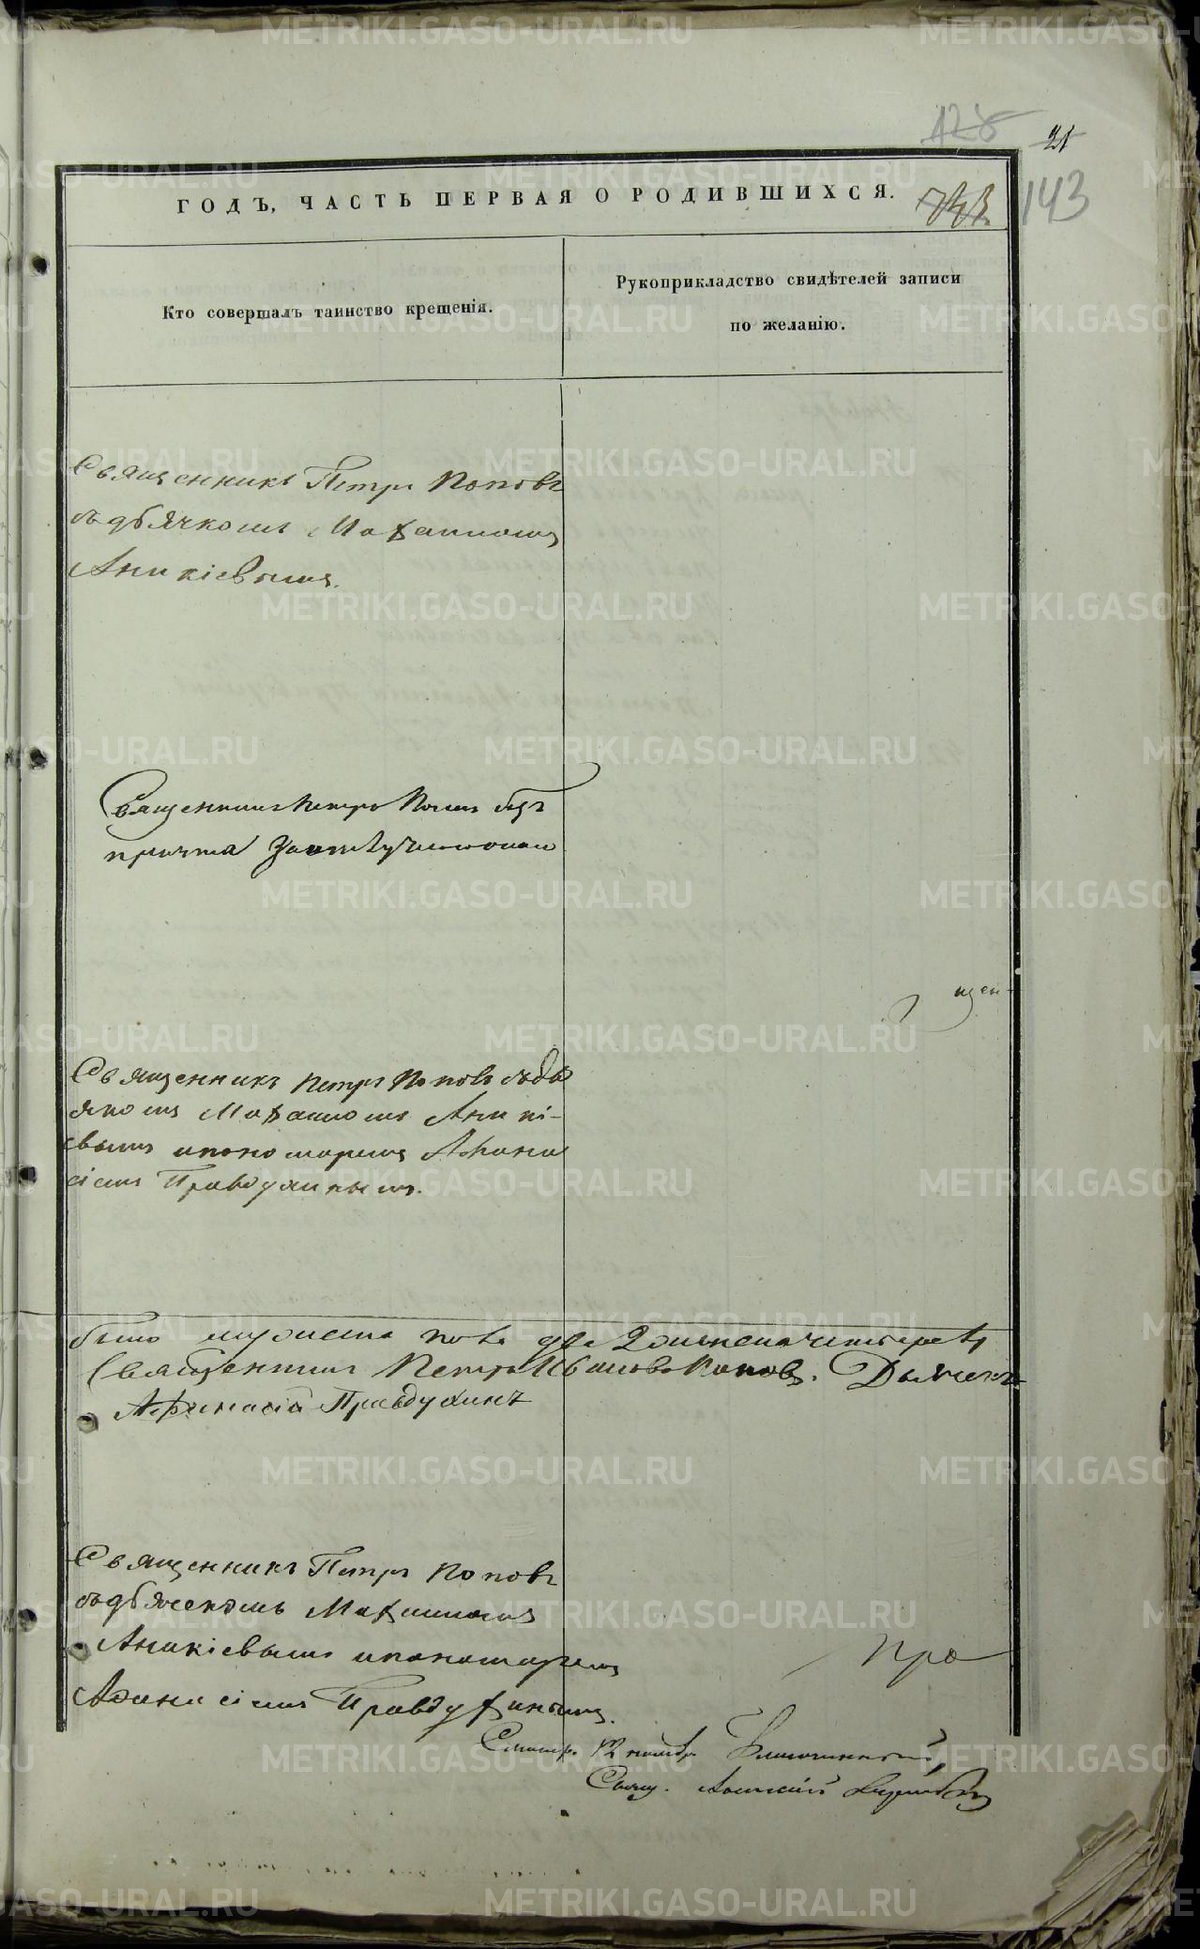 128
21
ГОДЪ, ЧАСТЬ ПЕРВАЯ О РОДИВШИХСЯ.
143
Кто совершалъ таинство крещенія.
Рукоприкладство свидѣтелей записи
по желанію.
Священникъ Петръ Поповъ
съ дьячкомъ Маѳаиломъ
Аникіевымъ.
Священникъ Петръ Поповъ безъ
причта
щен-
Священникъ Петръ Поповъ съ дь
якомъ Маѳаиломъ Аникі-
евымъ и пономаремъ Афана
сіемъ Правдухинымъ.
было мужеска пола два женска четыре
Священникъ Петръ Ивановъ Поповъ. Дьячекъ
Афанасій Правдухинъ
Священникъ Петръ Поповъ
съ дьячекомъ Маѳаиломъ
Аникіевымъ и пономаремъ
Афанасіемъ Правдухинымъ.
Про
Смотр. 12 ноября
Свящ.
METRIKI.GASO-URAL.RU